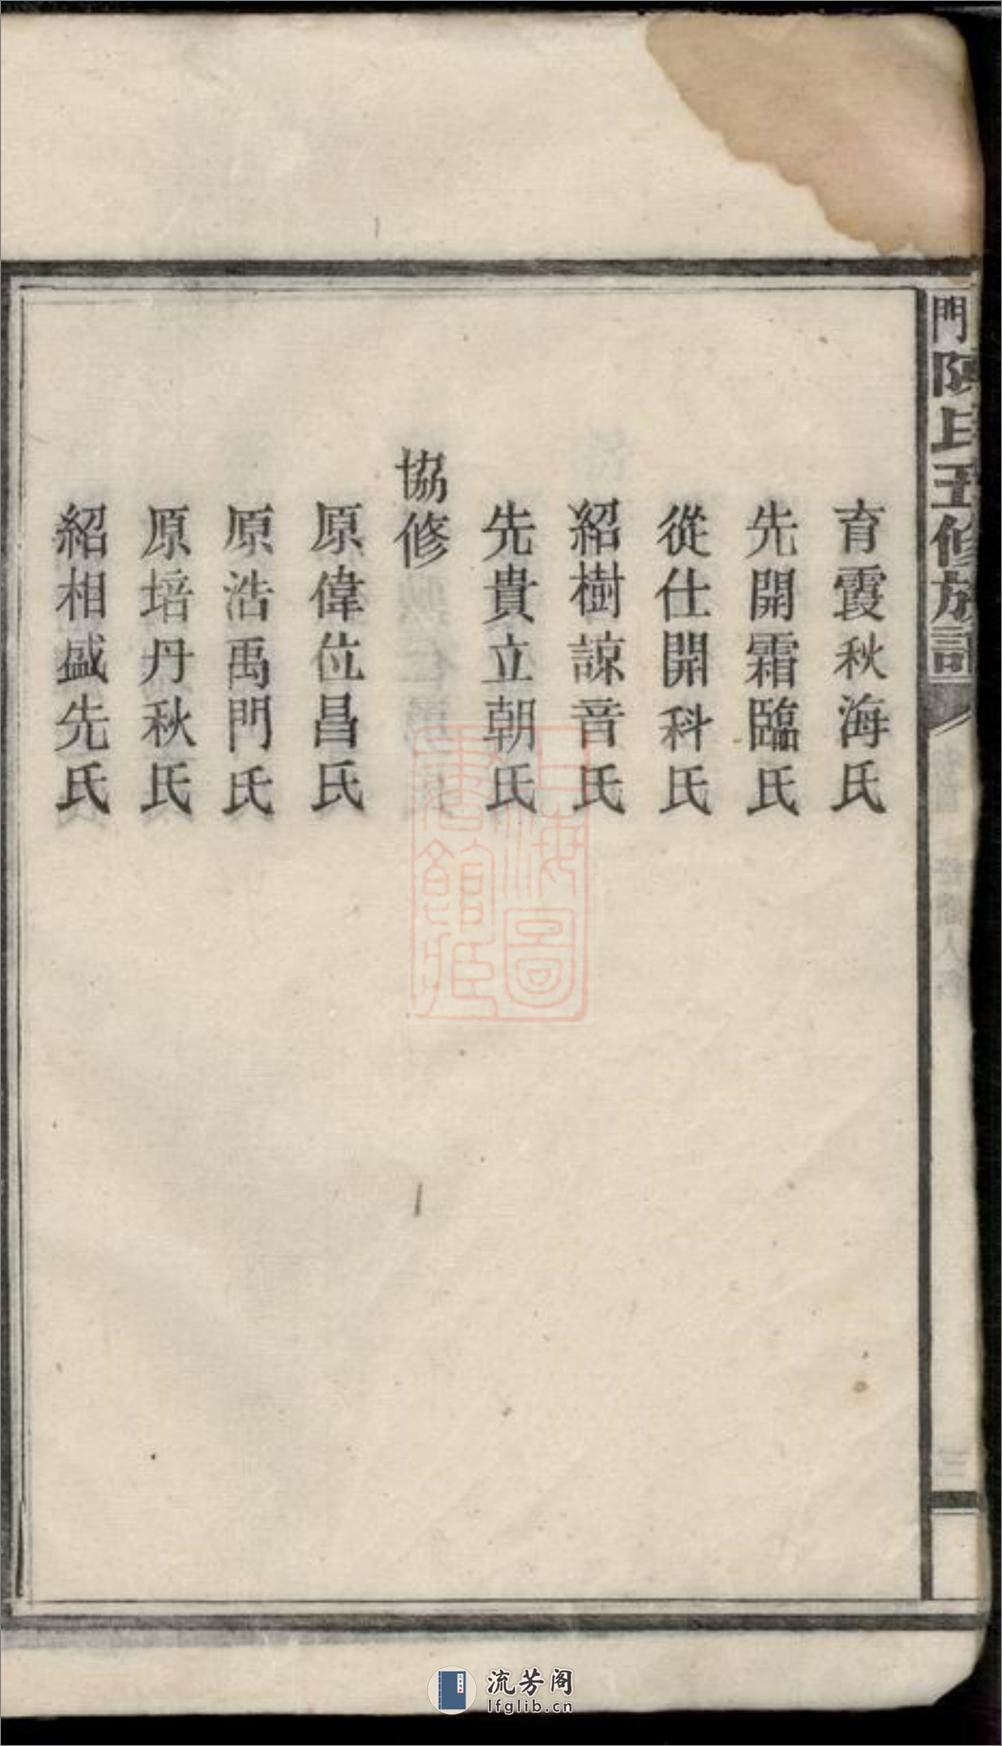 門陳氏五修族譜
育霞秋海氏
先開霜臨氏
從仕開科氏
紹樹諒音氏
先貴立朝氏
協修
原偉位昌氏
原浩禹門氏
原培丹秋氏
紹相盛先氏
上海圖書館藏
三
流芳阁
lfglib.cn